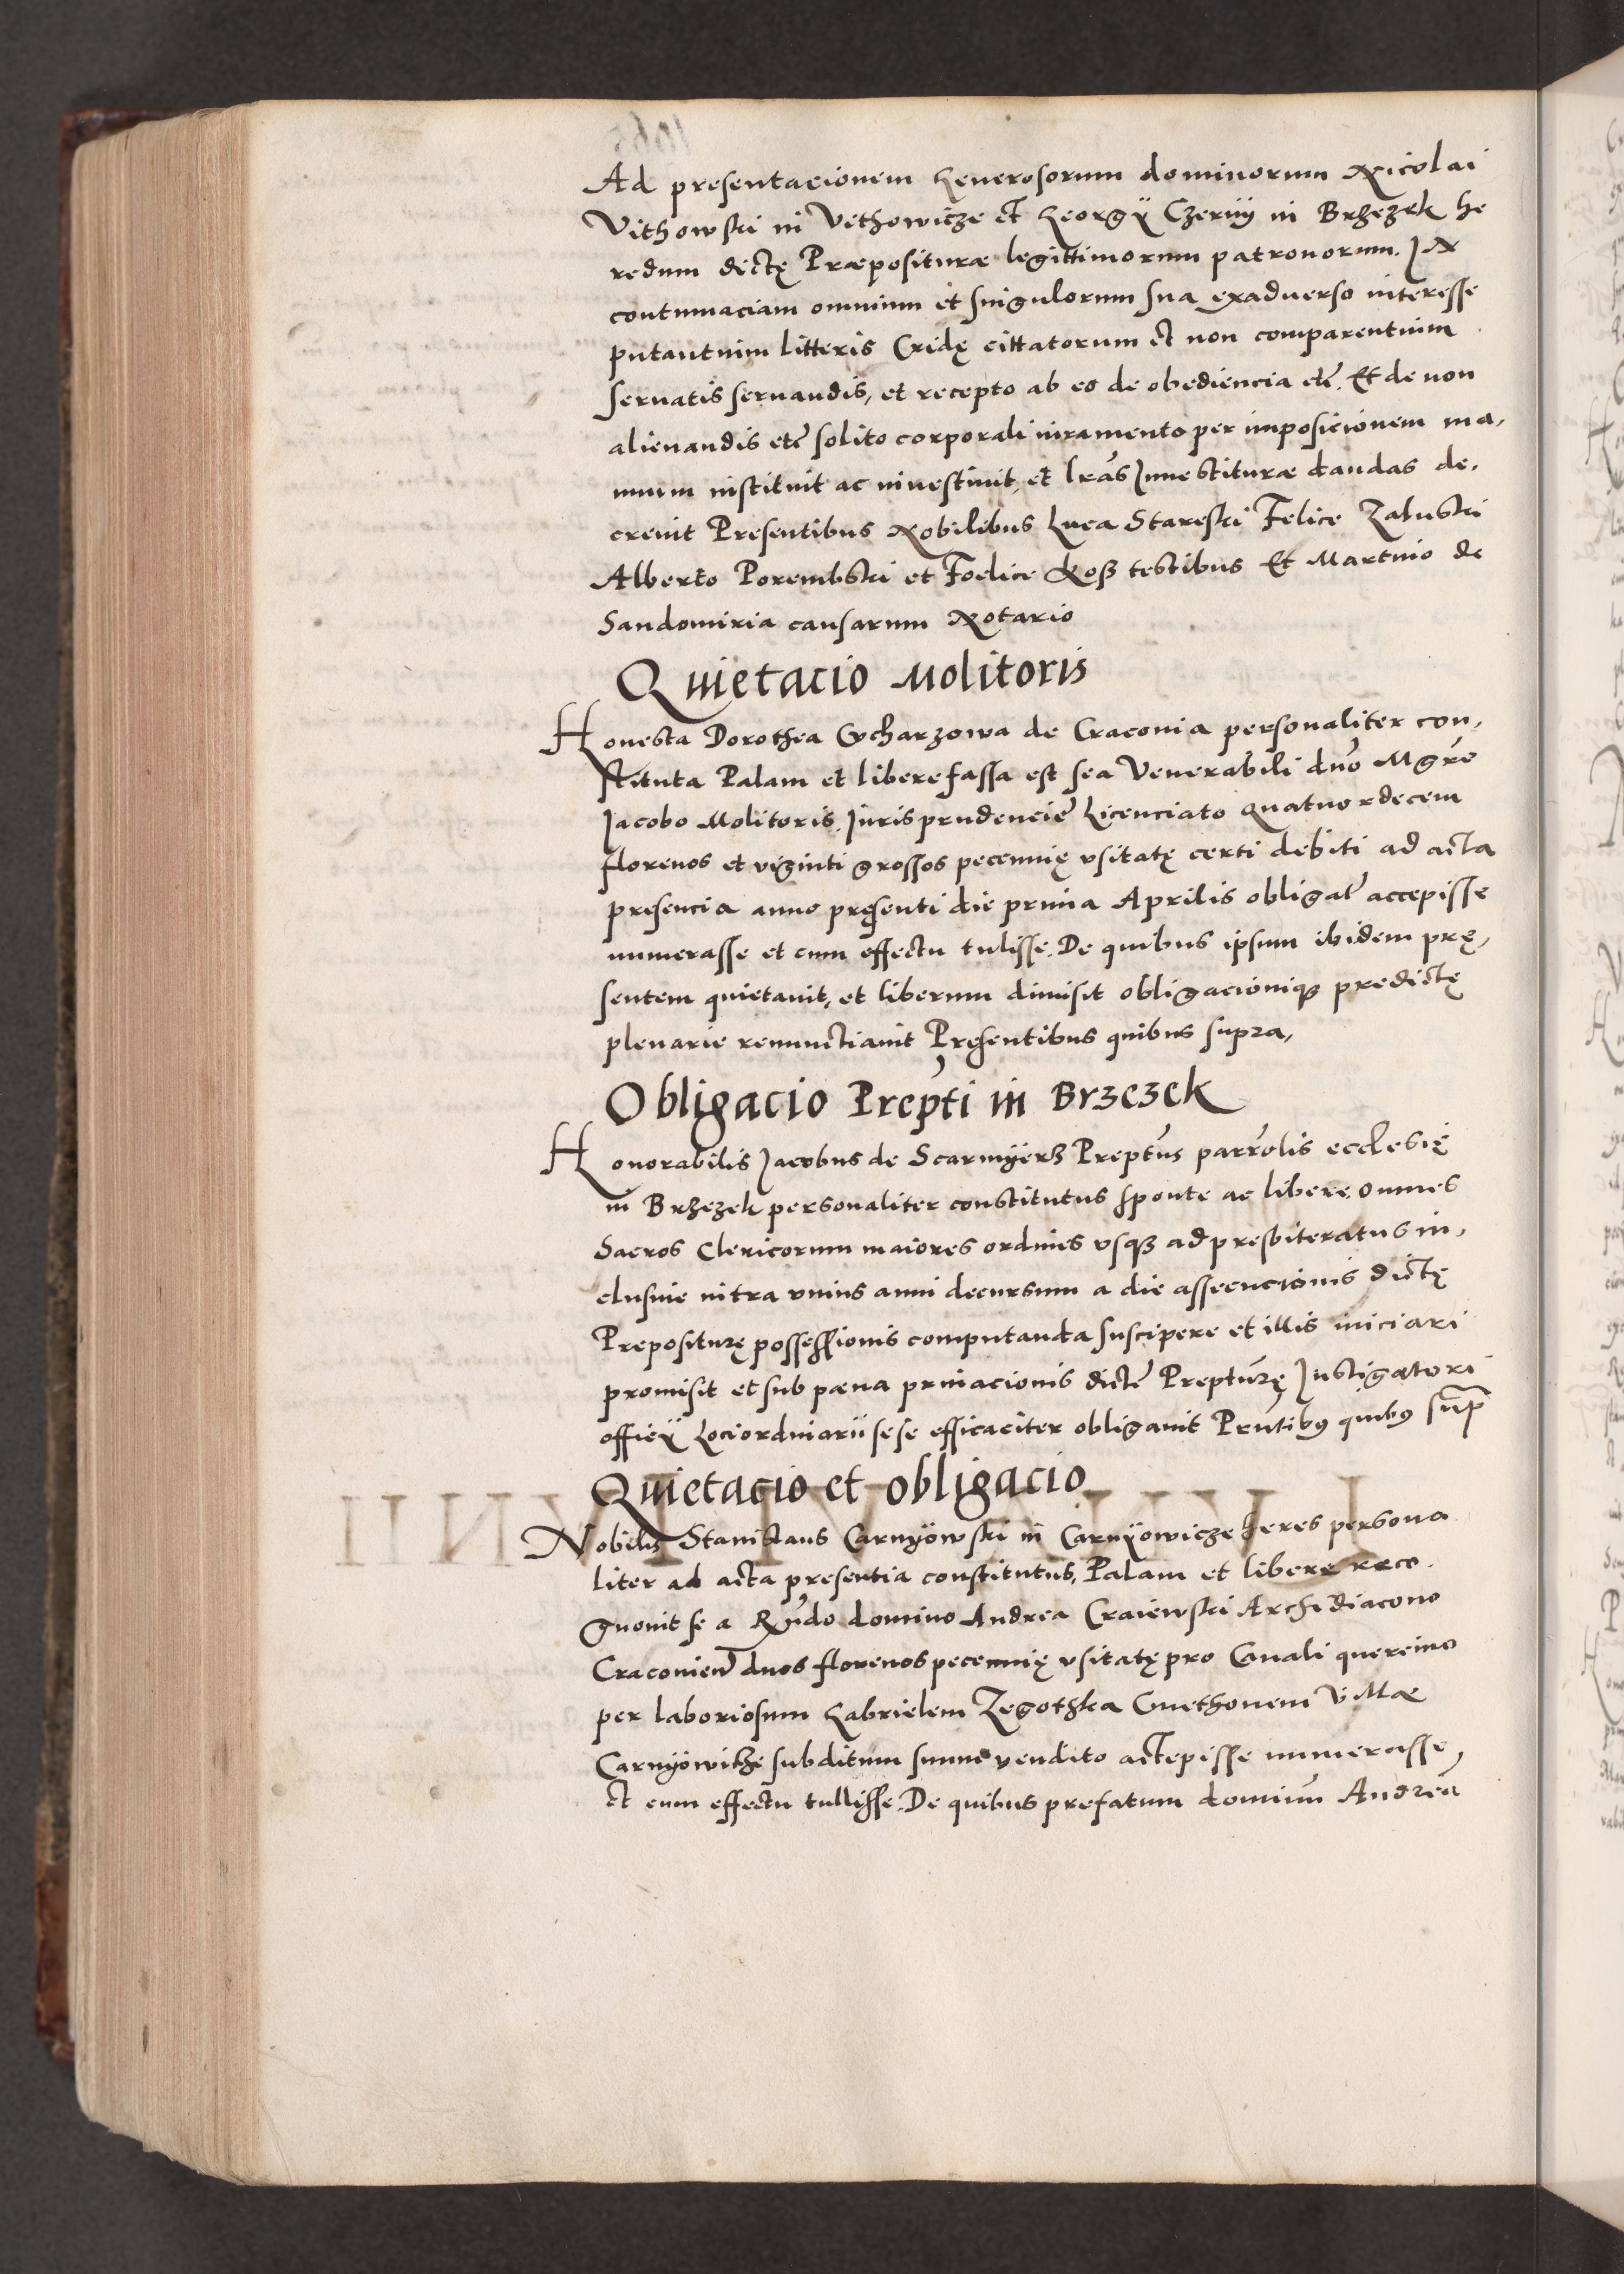 Ad presentacionem Generosorum dominorum Nicolai
Vithowski in Vithowicze et Georgÿ Czernÿ in Brzezek he
redum dictę Præpositurae legittimorum patronorum. IN
contumaciam omnium et singulorum sua exaduerso interesse
putantuim litteris Cridę cittatorum et non comparentuim
seruatis seruandis, et recepto ab eo de obediencia etc̃. Et de non
alienandis etc̃ solito corporali iuramento per imposicionem ma,
nuum instituit ac inuestiuit, et lr̃as Inuestituræ dandas de,
creuit Presentibus Nobilibus Luca Stareski Felice Zaluski
Alberto Porembski et Foelice Koß testibus Et Martino de
Sandomiria causarum Notario
Quietacio Molitoris
Honesta Dorothea de Craconia personaliter con,
stituta Palam et libere fassa est se a Venerabili dno᷃ Mgr̃e
Jacobo Molitoris. Juris prudencie᷃ Licenciato quatuordecem
florenos et viginti grossos pecunnię vsitatę certi debiti ad acta
presencia anno pręsenti die prima Aprilis obligat᷃ accepisse
numerasse et cum effectu tulisse. De quibus ipsum ibidem prę,
sentem quietauit, et liberum dimisit obligacioniqȝ predictę
plenarie renunctiauit Pręsentibus quibus supra,
Obligacio Prep᷃ti in Brzezek
Honorabilis Jacobus de Scarmÿerß Prept᷃us parr᷃olis ecclesię
in Brzezek personaliter constitutus sponte ac libere. omnes
Sacros Clericorum maiores ordines vsqȝ ad presbiteratus in,
clusiue intra vnius anni decursum a die assecucionis dictę
Prepositurę possessionis computanda suscipere et illis iniciari
promisit et sub pæna priuacionis dicte᷃ Prept᷃urę Instigatori
officÿ Loci ordinarii sese efficaciter obligauit Prn᷃tibꝰ quibꝰ sup᷃
Quietacio et obligacio
Nobilis Stanislaus Carnÿowski in Carnÿowicze heres persona
liter ad acta presentia constitutus, Palam et libere reco.
gnouit se a Rñdo domino Andrea Craiewski Archidiacono
Craconien̄ duos florenos pecunnię vsitatę pro Canali quercino
per laboriosum Gabrielem Zegothka Cmethonem Villae
Carnÿowicze subditum suum vendito acceppisse numerasse,
et cum effectu tullisse. De quibus prefatum dominũ Andreã